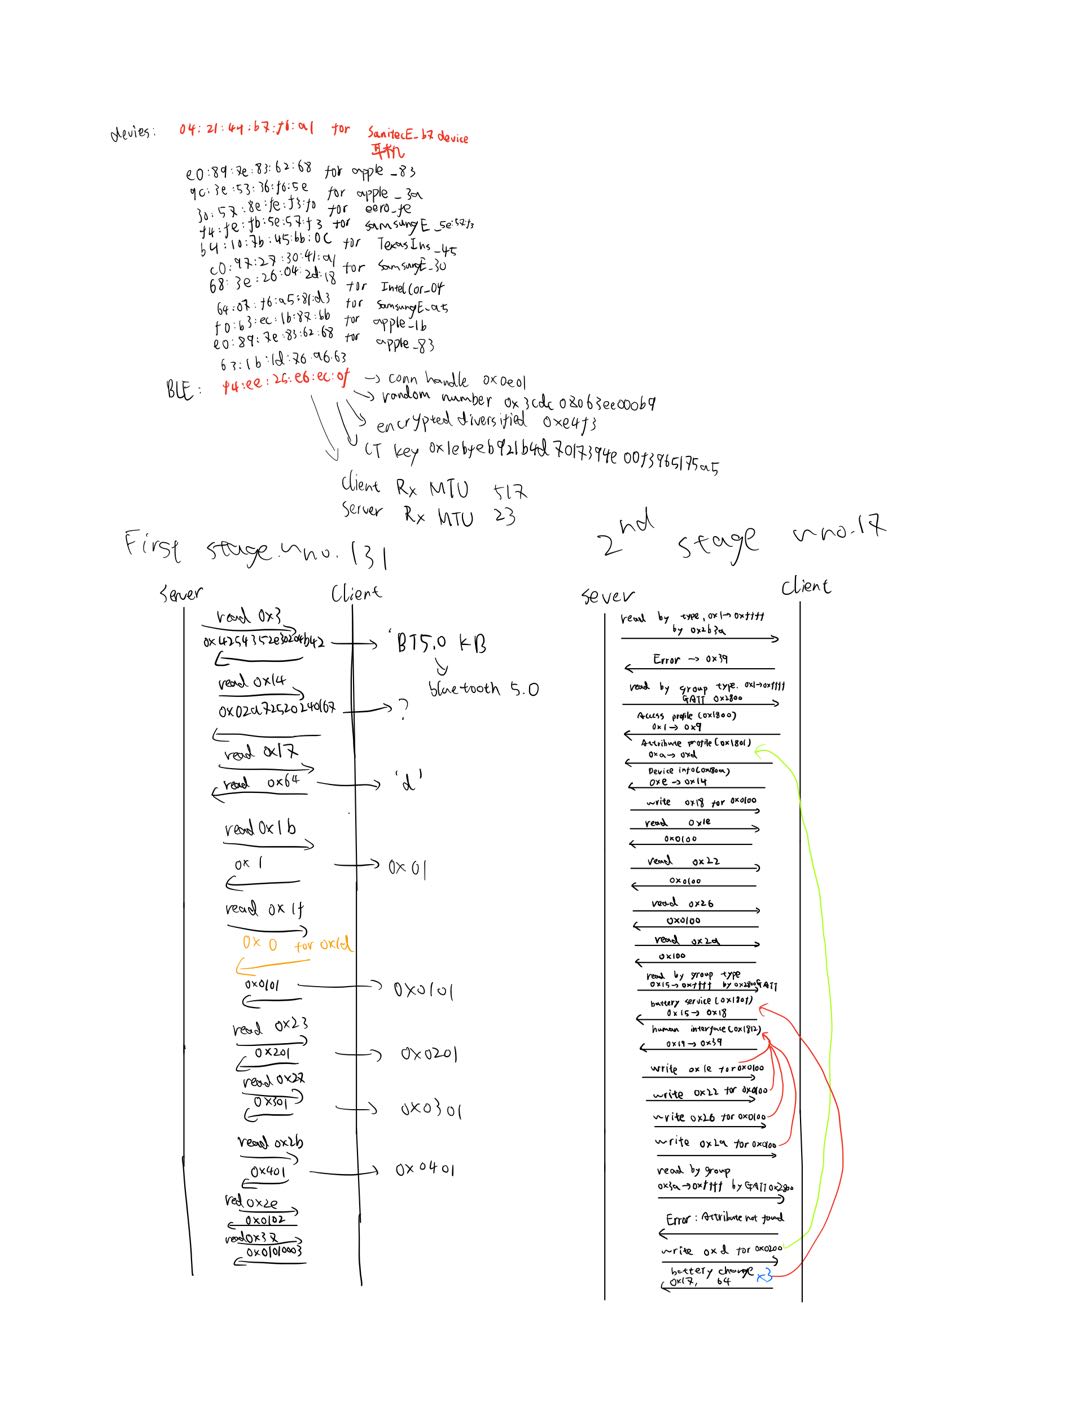 devies: 04:21:44:b7:f6:a1 for SanitecE_b7 device
耳机
e0:89:7e:83:62:68 for apple_83
9c:3e:53:36:f6:5e for apple_3a
30:57:8e:fe:f3:f0 for eero_fe
f4:fe:fb:5e:57:f3 for samsungE_5e:57:f3
b4:10:7b:45:bb:0C for TexasIns_45
c0:97:27:30:41:a1 for SamsungE_30
68:3e:26:04:2d:18 for IntelCor_04
64:07:f6:a5:81:d3 for SamsungE_a5
f0:b3:ec:1b:87:bb for apple_1b
e0:89:7e:83:62:68 for apple_83
63:1b:1d:76:96:63
BLE: f4:ee:25:e6:ec:0f → conn handle 0x0e01
random number 0x3cdc08063ee000b9
encrypted diversified 0xe4f3
LT key 0x1ebfeb921b4d7017394e00f3965175a5
Client Rx MTU 517
Server Rx MTU 23
First stage no.131
Server Client
read 0x3
0x4254352e30204b42 → 'BT5.0 KB
bluetooth 5.0
read 0x14
0x02a72520240167 → ?
read 0x17
read 0x64 → 'd'
read 0x1b
0x1 → 0x01
read 0x1f
0x0 for 0x1d
0x0101 → 0x0101
read 0x23
0x201 → 0x0201
read 0x27
0x301 → 0x0301
read 0x2b
0x401 → 0x0401
red 0x2e
0x0102
read 0x37
0x01010003
2nd stage no.17
Sever Client
read by type, 0x1→0xffff
by 0x2b3a
Error → 0x39
read by group type. 0x1→0xffff
GATT 0x2800
Access profile (0x1800)
0x1 → 0x9
Attribute profile (0x1801)
0xa → 0xd
Device info (0x180a)
0xe → 0x14
write 0x18 for 0x0100
read 0x1e
0x0100
read 0x22
0x0100
read 0x26
0x0100
read 0x2a
0x100
read by group type
0x15→0xffff by 0x2800 GATT
battery service (0x180f)
0x15 → 0x18
human interface (0x1812)
0x19 → 0x39
write 0x1e for 0x0100
write 0x22 for 0x0100
write 0x26 for 0x0100
write 0x2a for 0x0100
read by group
0x3a→0xffff by GATT 0x2800
Error: Attribute not found
write 0xd for 0x0200
battery change x3
0x17, 64